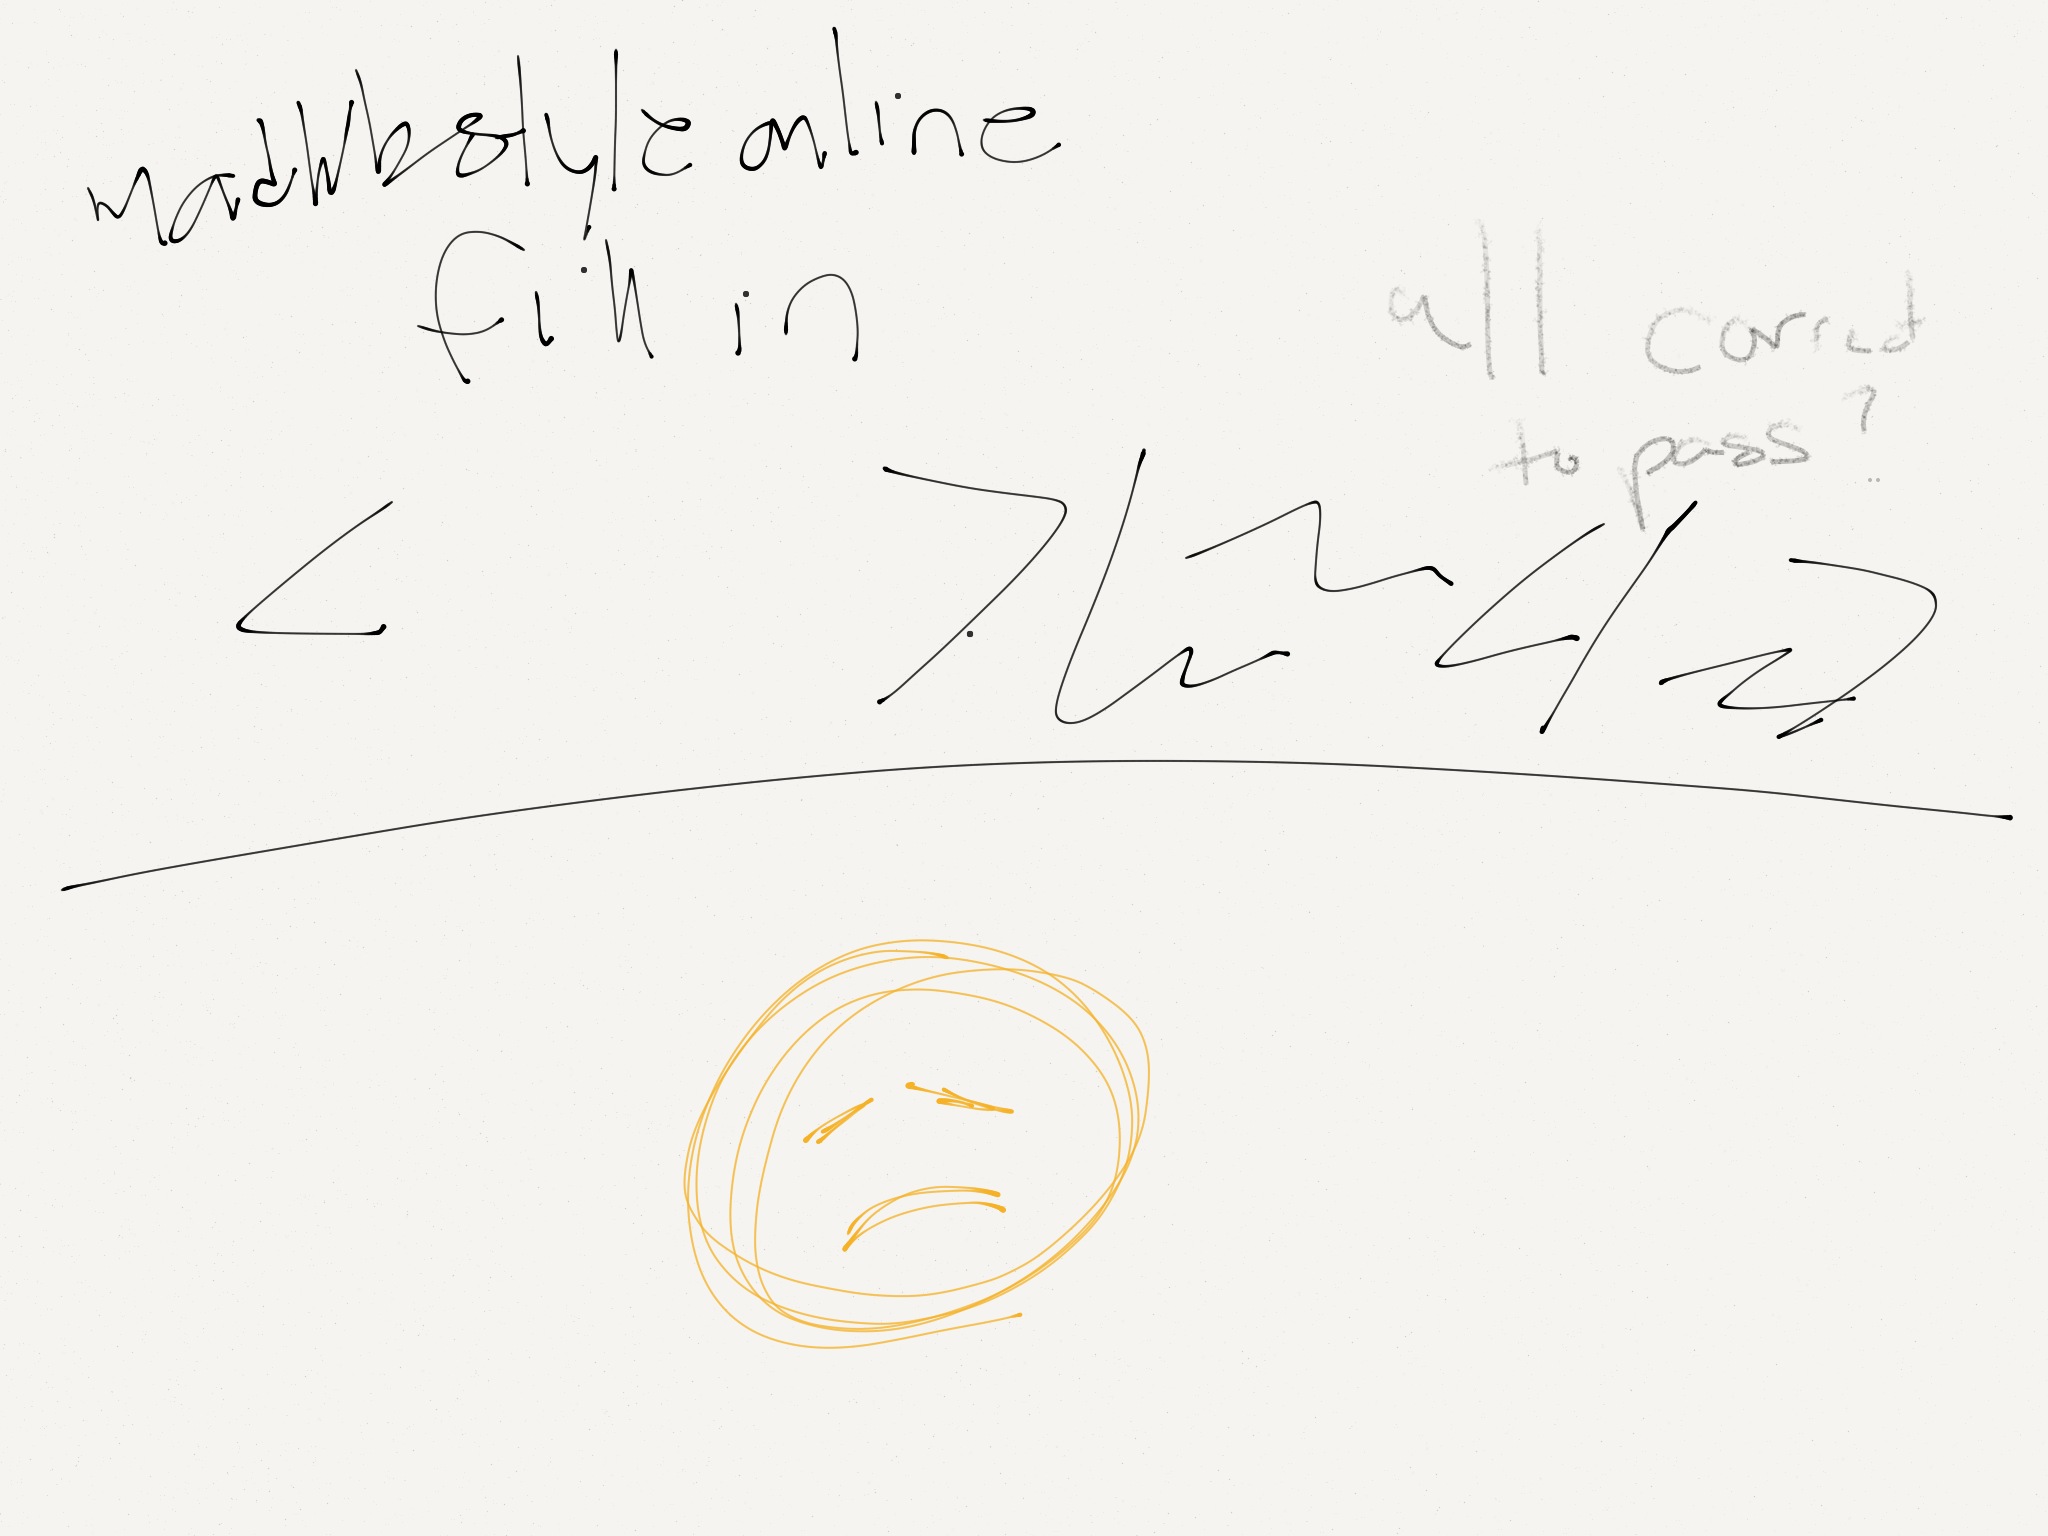 madlib style online
fill in
all correct
to pass?
< > </ >